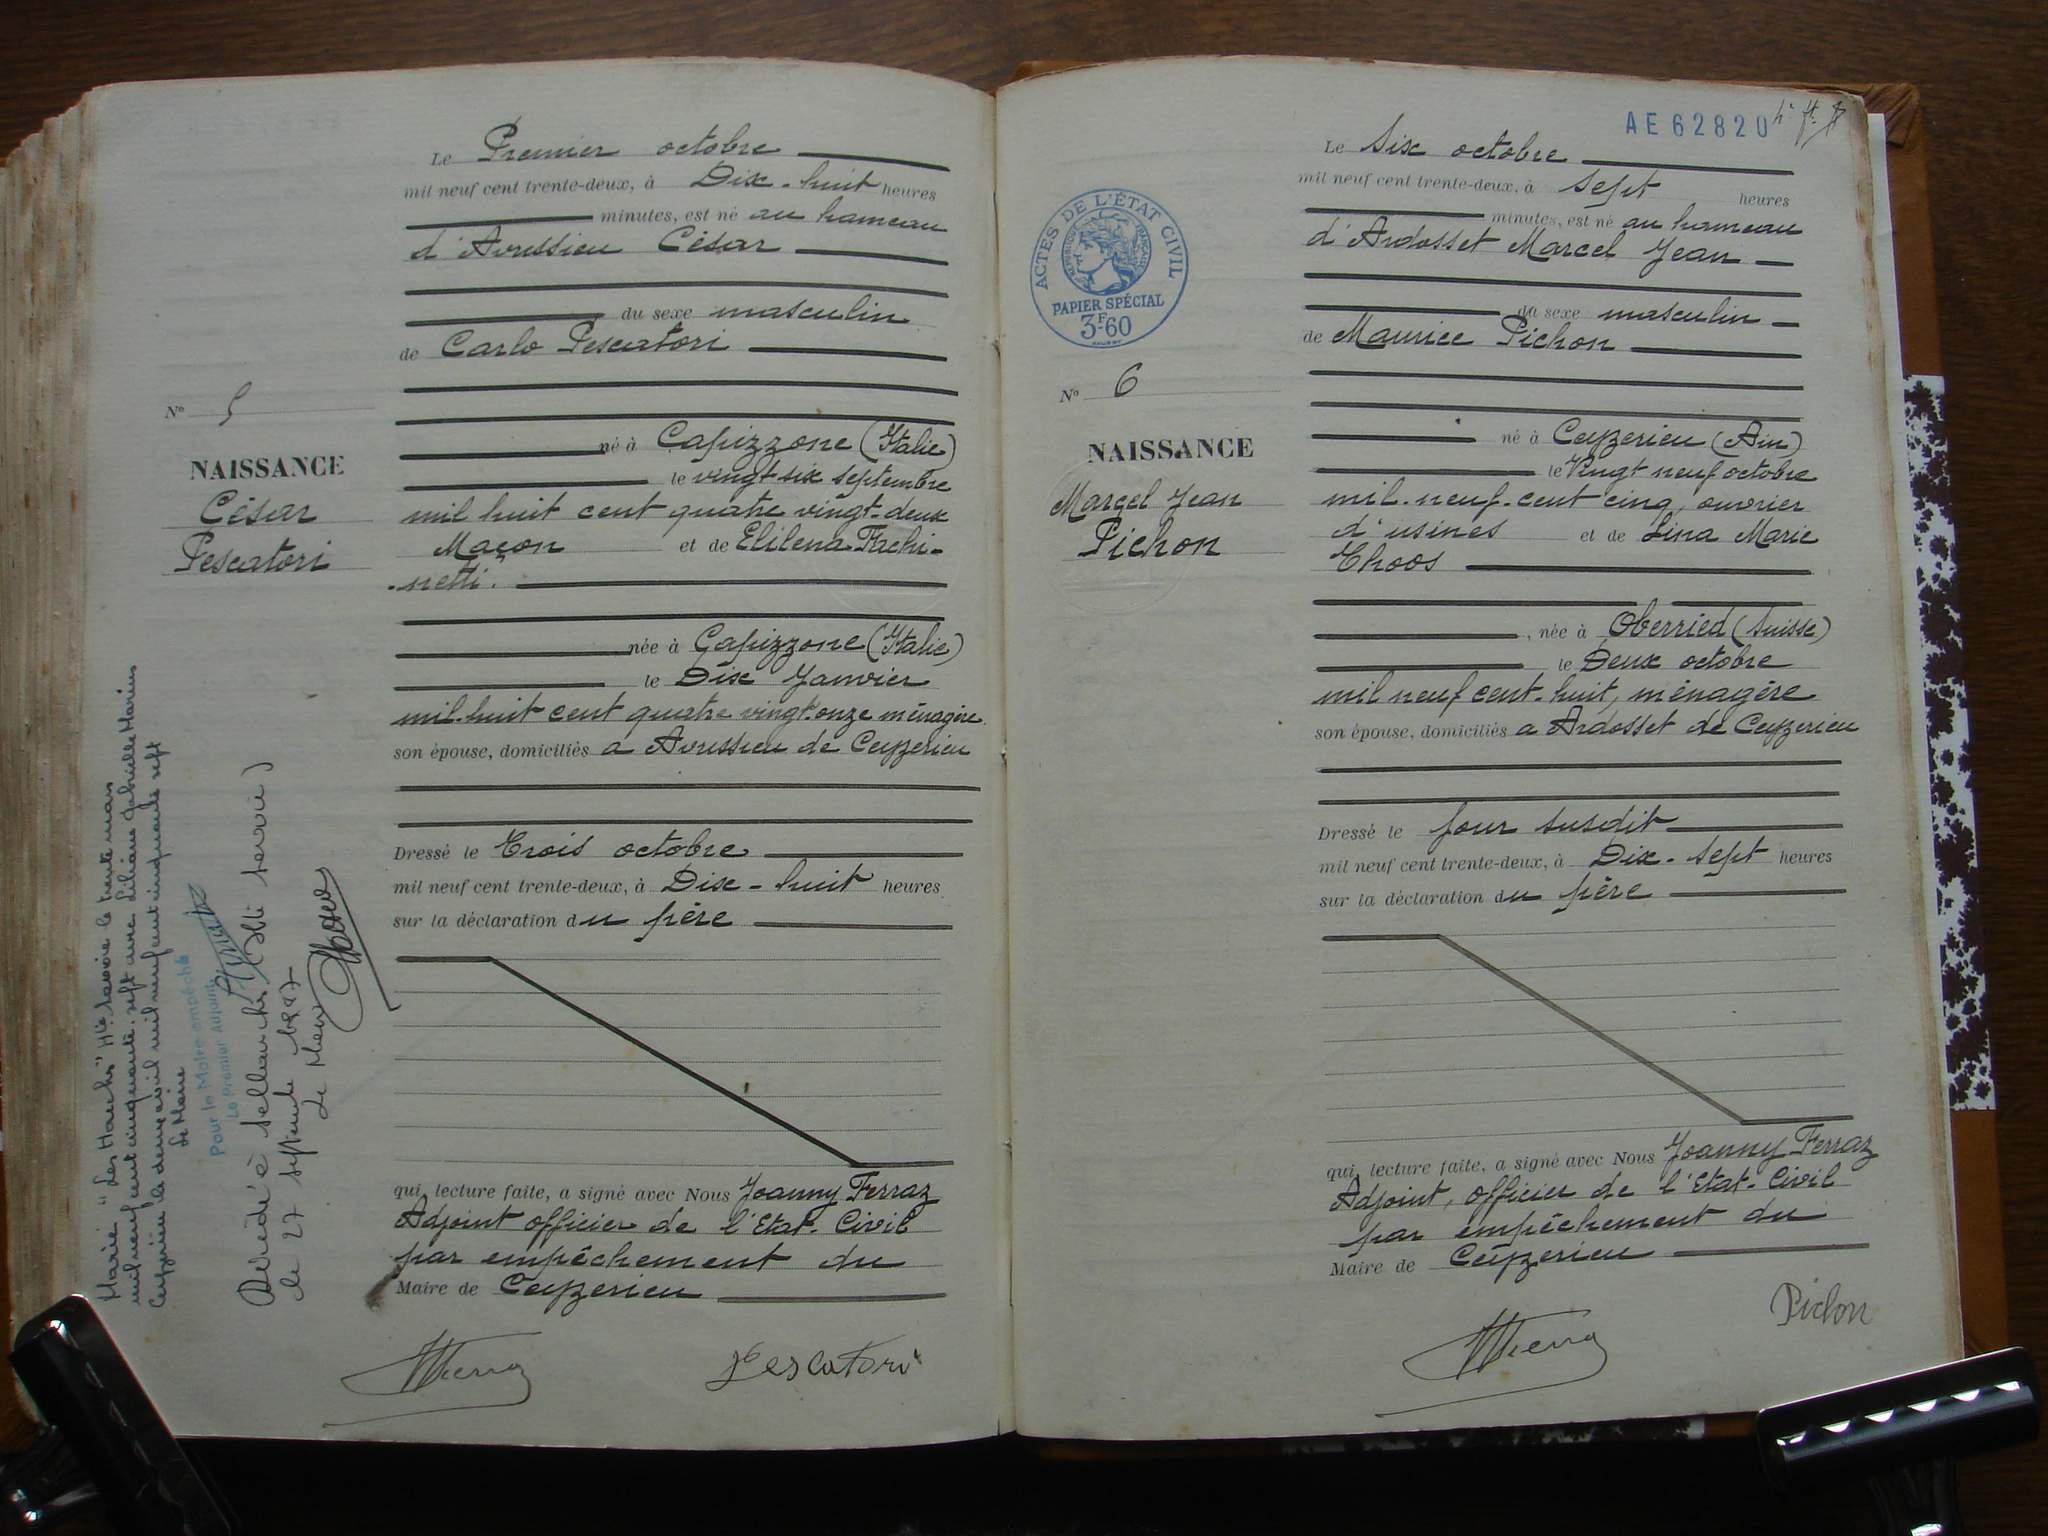 Le Premier octobre
mil neuf cent trente-deux, à Dix-huit heures
minutes, est né au hameau
d'Avrissieu César
du sexe masculin
de Carlo Pescatori
né à Capizzone (Italie)
le vingt six septembre
mil huit cent quatre vingt-deux
Maçon et de Elilena Fachi-
-netti.
née à Capizzone (Italie)
le Dix Janvier
mil-huit cent quatre vingt-onze ménagère
son épouse, domiciliés a Avrissieu de Ceyzerieu
Dressé le Trois octobre
mil neuf cent trente-deux, à Dix-huit heures
sur la déclaration du père
qui, lecture faite, a signé avec Nous Joanny Ferraz
Adjoint officier de l'Etat-Civil
par empêchement du
Maire de Ceyzerieu
Pescatori
N° 5
NAISSANCE
César
Pescatori
Marié "Les Houches" Hte Savoie le trente mars
mil neuf cent cinquante-sept avec Liliane Gabrielle
Ceyzérieu le deux avril mil neuf cent cinquante sept
Le Maire
Pour le Maire empêché
Le Premier Adjoint
Décédé à Sallanches (Hte Savoie)
le 27 septembre 1997
Le Maire
AE 62820
ACTES DE L'ÉTAT CIVIL
RÉPUBLIQUE FRANÇAISE
PAPIER SPÉCIAL
3F60
N° 6
NAISSANCE
Marcel Jean
Pichon
Le Six octobre
mil neuf cent trente-deux, à sept heures
minutes, est né au hameau
d'Ardosset Marcel Jean
du sexe masculin
de Maurice Pichon
né à Ceyzerieu (Ain)
le Vingt neuf octobre
mil-neuf-cent cinq, ouvrier
d'usines et de Lina Marie
Thoos
, née à Oberried (Suisse)
le Deux octobre
mil neuf cent-huit, ménagère
son épouse, domiciliés a Ardosset de Ceyzerieu
Dressé le jour susdit
mil neuf cent trente-deux, à Dix-sept heures
sur la déclaration du père
qui, lecture faite, a signé avec Nous Joanny Ferraz
Adjoint, officier de l'Etat-Civil
par empêchement du
Maire de Ceyzerieu
Pichon